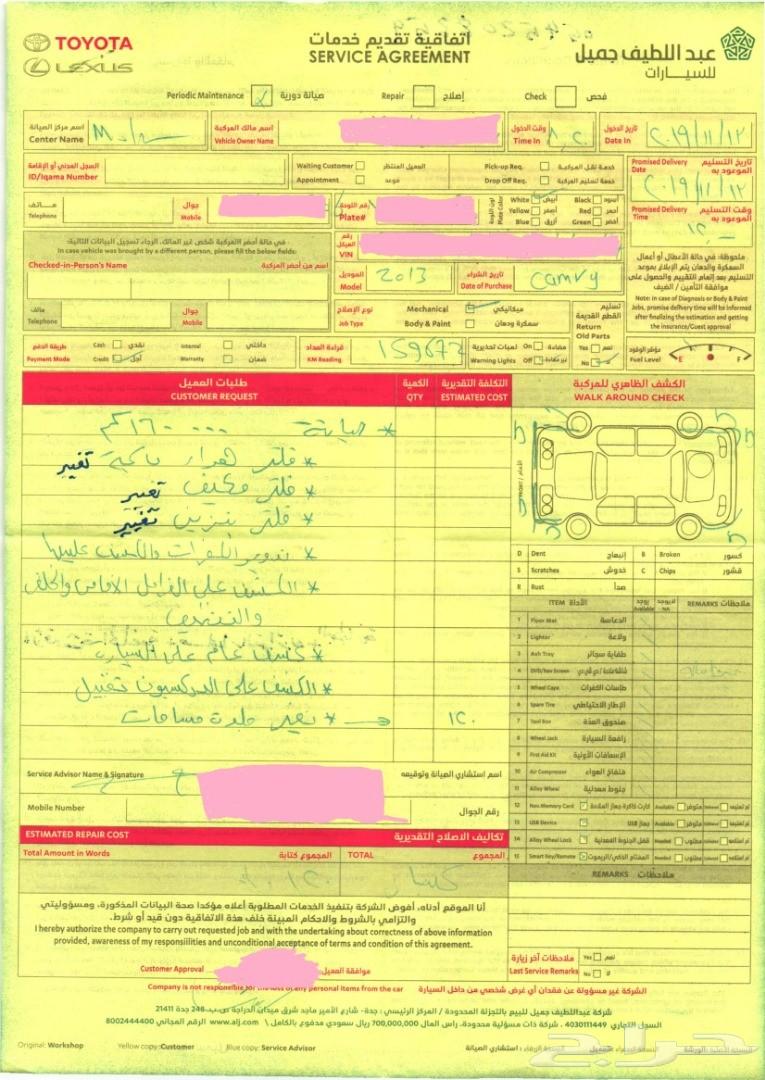 TOYOTA
LEXUS
اتفاقية تقديم خدمات
SERVICE AGREEMENT
عبد اللطيف جميل
للسيارات
Periodic Maintenance صيانة دورية Repair إصلاح Check فحص
اسم مركز الصيانة
Center Name
اسم مالك المركبة
Vehicle Owner Name
وقت الدخول
Time In
تاريخ الدخول
Date In ٢٠١٩/١١/١٢
السجل المدني أو الإقامة
ID/Iqama Number
Waiting Customer العميل المنتظر
Appointment موعد
Pick-up Req. خدمة نقل المركبة
Drop Off Req. خدمة تسليم المركبة
تاريخ التسليم الموعود به
Promised Delivery Date
٢٠١٩/١١/١٢
هاتف
Telephone
جوال
Mobile
رقم اللوحة
Plate#
لون اللوحة
Plate Color
White أبيض Black أسود
Yellow أصفر Red أحمر
Blue أزرق Green أخضر
وقت التسليم الموعود به
Promised Delivery Time
في حالة أحضر المركبة شخص غير المالك، الرجاء تسجيل البيانات التالية:
In case vehicle was brought by a different person, please fill the below fields:
رقم الهيكل
VIN
Checked-in-Person's Name اسم من أحضر المركبة
الموديل
Model 2013
تاريخ الشراء
Date of Purchase Camry
ملاحظة: في حالة الأعطال أو أعمال السمكرة والدهان يتم الإبلاغ بموعد التسليم بعد إتمام التقييم والحصول على موافقة التأمين / الضيف
Note: in Case of Diagnosis or Body & Paint Jobs, promise delivery time will be informed after finalizing the estimation and getting the insurance/Guest approval
هاتف
Telephone
جوال
Mobile
نوع الإصلاح
Job Type
Mechanical ميكانيكي
Body & Paint سمكرة ودهان
تسليم القطع القديمة
Return Old Parts
Yes نعم
No لا
طريقة الدفع
Payment Mode
Cash نقدي Internal داخلي
Credit آجل Warranty ضمان
قراءة العداد
KM Reading 159673
لمبات تحذيرية
Warning Lights
On مضاءة
Off غير مضاءة
مؤشر الوقود
Fuel Level E F
طلبات العميل
CUSTOMER REQUEST
الكمية
QTY
التكلفة التقديرية
ESTIMATED COST
الكشف الظاهري للمركبة
WALK AROUND CHECK
* صيانة ١٦٠٠٠٠ كم
* فلتر هواء تغيير
* فلتر مكيف تغيير
* فلتر بنزين تغيير
* الكشف على الفرامل الأمامي والخلفي والتنظيف
* كشف عام على السيارة
* الكشف على الدركسيون تثقيل
* تغيير جلدة مساحات ١٢٠
الأمام / FRONT
D Dent إنبعاج B Broken كسور
S Scratches خدوش C Chips قشور
R Rust صدأ
ITEM الأداة
يوجد Available
لايوجد NA
REMARKS ملاحظات
1 Floor Mat الدعاسة
2 Lighter ولاعة
3 Ash Tray طفاية سجائر
4 DVD/Nav Screen
5 Wheel Caps طاسات الكفرات
6 Spare Tire الإطار الاحتياطي
7 Tool Box صندوق العدة
8 Wheel Jack رافعة السيارة
9 First Aid Kit الإسعافات الأولية
10 Air Compressor منفاخ الهواء
11 Alloy Wheel جنوط معدنية
12 Nav. Memory Card كارت ذاكرة جهاز الملاحة Available متوفر
13 USB Device جهاز USB Available متوفر
14 Alloy Wheel Lock قفل الجنوط المعدنية Needed مطلوب
15 Smart Key/Remote المفتاح الذكي/الريموت Needed مطلوب
REMARKS ملاحظات
Service Advisor Name & Signature اسم استشاري الصيانة وتوقيعه
Mobile Number رقم الجوال
ESTIMATED REPAIR COST تكاليف الاصلاح التقديرية
Total Amount in Words المجموع كتابة TOTAL المجموع
أنا الموقع أدناه، أفوض الشركة بتنفيذ الخدمات المطلوبة أعلاه مؤكدا صحة البيانات المذكورة، ومسؤوليتي والتزامي بالشروط والاحكام المبينة خلف هذة الاتفاقية دون قيد أو شرط.
I hereby authorize the company to carry out requested job and with the undertaking about correctness of above information provided, awareness of my responsibilities and unconditional acceptance of terms and condition of this agreement.
ملاحظات آخر زيارة
Last Service Remarks
Yes نعم
No لا
Customer Approval موافقة العميل
Company is not responsible for the loss of any personal items from the car الشركة غير مسؤولة عن فقدان أي غرض شخصي من داخل السيارة
شركة عبداللطيف جميل للبيع بالتجزئة المحدودة / المركز الرئيسي : جدة- شارع الأمير ماجد شرق ميدان الدراجة ص.ب 248 جدة 21411
السجل التجاري 4030111449 . شركة ذات مسؤولية محدودة. راس المال 700,000,000 ريال سعودي مدفوع بالكامل \ www.alj.com الرقم المجاني 8002444400
Original: Workshop Yellow copy: Customer Blue copy: Service Advisor
حراج